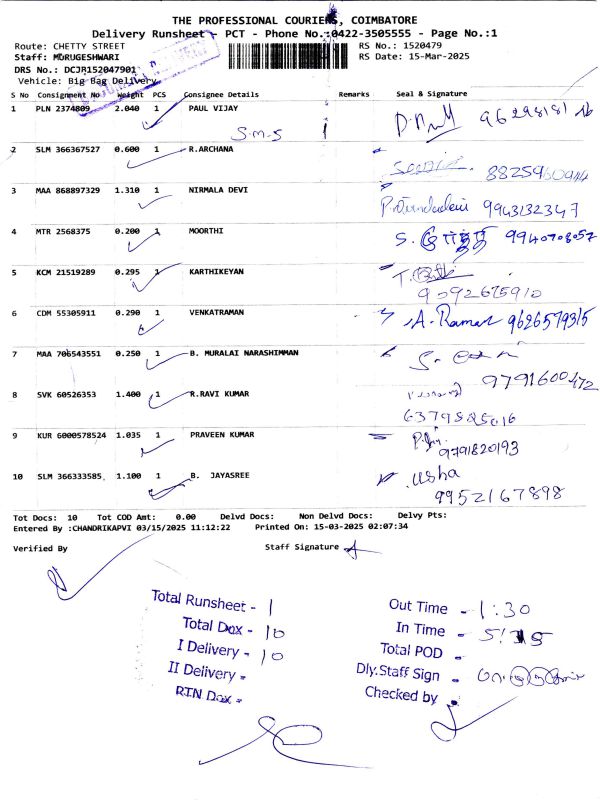 THE PROFESSIONAL COURIERS, COIMBATORE
Delivery Runsheet - PCT - Phone No.:0422-3505555 - Page No.:1
Route: CHETTY STREET RS No.: 1520479
Staff: MURUGESHWARI RS Date: 15-Mar-2025
DRS No.: DCJR152047901
Vehicle: Big Bag Delivery
S No Consignment No Weight PCS Consignee Details Remarks Seal & Signature
1 PLN 2374809 2.040 1 PAUL VIJAY
S.M.S
2 SLM 366367527 0.600 1 R.ARCHANA
3 MAA 868897329 1.310 1 NIRMALA DEVI 9943132347
4 MTR 2568375 0.200 1 MOORTHI S. 9940708057
5 KCM 21519289 0.295 1 KARTHIKEYAN
9092675910
6 CDM 55305911 0.290 1 VENKATRAMAN A. Raman 9626579315
7 MAA 706543551 0.250 1 B. MURALAI NARASHIMMAN
9791600472
8 SVK 60526353 1.400 1 R.RAVI KUMAR
9 KUR 6000578524 1.035 1 PRAVEEN KUMAR
9791820193
10 SLM 366333585 1.100 1 B. JAYASREE usha
9952167898
Tot Docs: 10 Tot COD Amt: 0.00 Delvd Docs: Non Delvd Docs: Delvy Pts:
Entered By :CHANDRIKAPVI 03/15/2025 11:12:22 Printed On: 15-03-2025 02:07:34
Verified By Staff Signature
Total Runsheet - 1
Total Dox - 10
I Delivery - 10
II Delivery -
RTN Dox -
Out Time - 1:30
In Time -
Total POD -
Dly.Staff Sign -
Checked by -